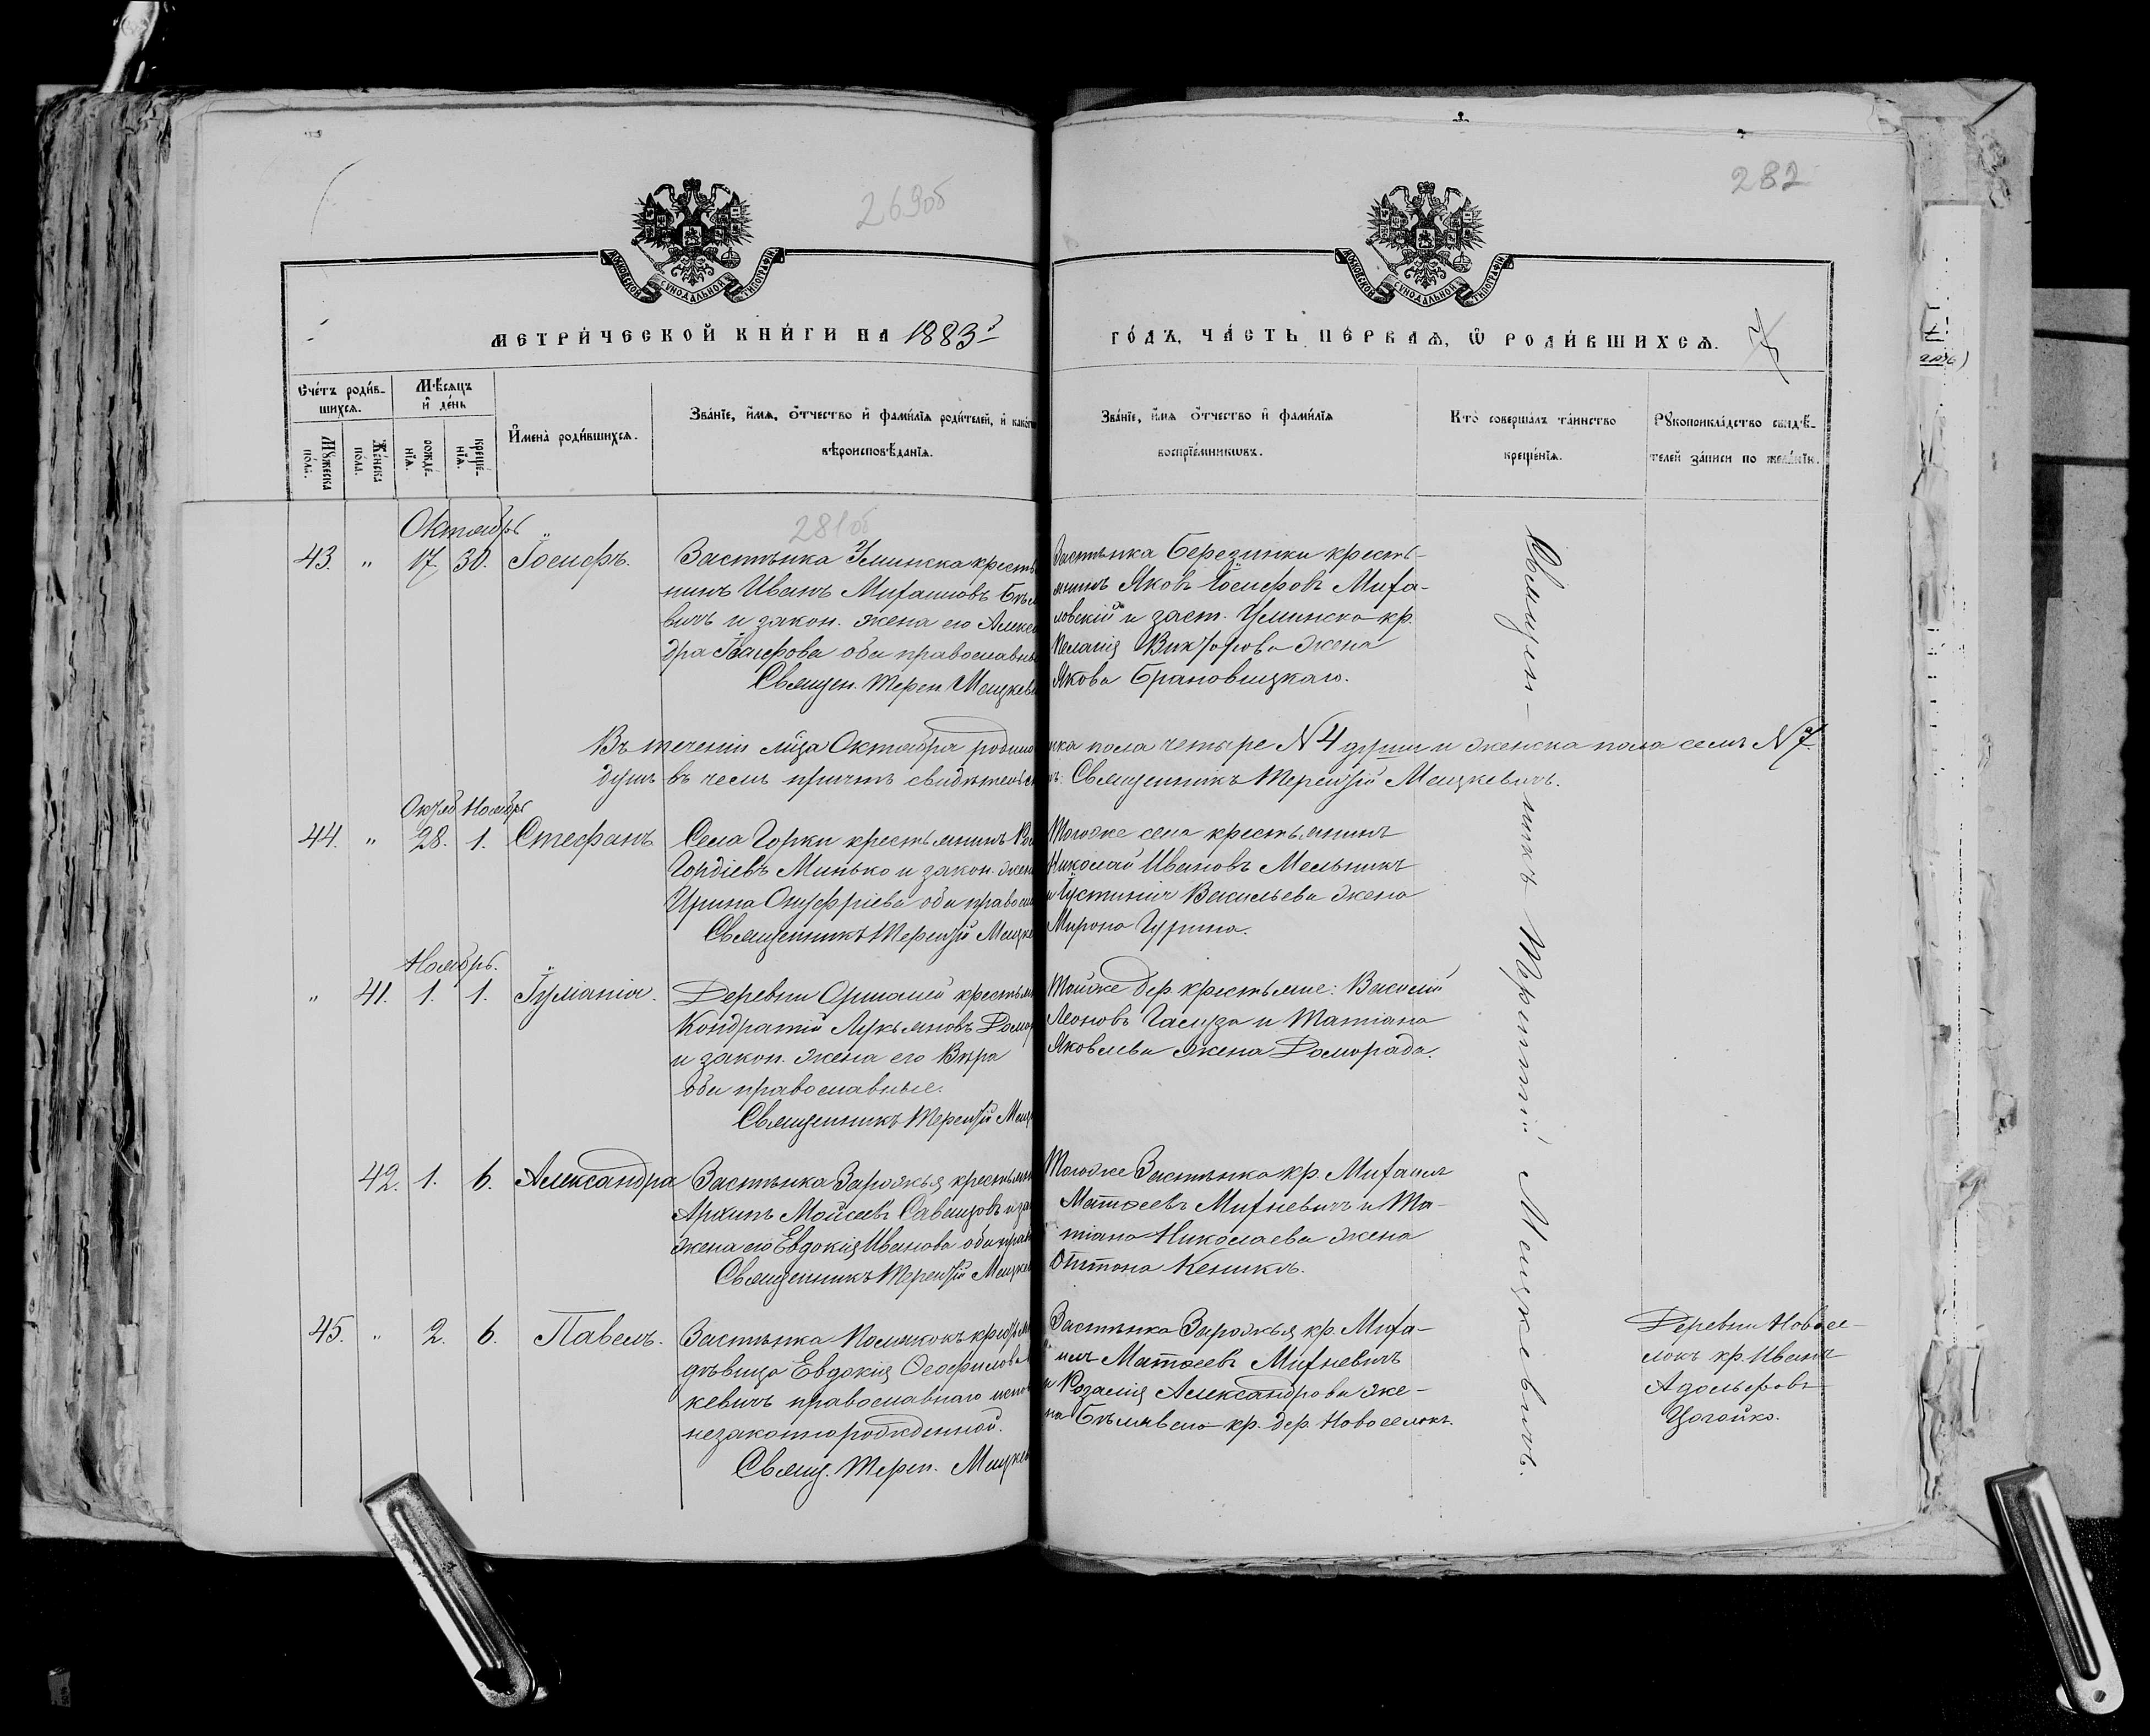 269об
282
МОСКОВСКОЙ СѴНОДАЛЬНОЙ ТИПОГРАФІИ
МОСКОВСКОЙ СѴНОДАЛЬНОЙ ТИПОГРАФІИ
МЕТРИ́ЧЕСКОЙ КНИ́ГИ НА 1883й
ГО́ДЪ, ЧА́СТЬ ПЕ́РВАѦ, Ѡ҆ РОДИ́ВШИХСѦ.
Сче́тъ роди́в-
шихсѧ.
Мѣ́сѧцъ
и҆ де́нь
Мꙋ́жеска
по́ла.
Же́нска
по́ла.
рожде́-
нїѧ.
креще́-
нїѧ.
И҆мена̀ роди́вшихсѧ.
Зва́нїе, и҆́мѧ, ѻ҆́тчество и҆ фами́лїѧ роди́телей, и҆ како́гѡ
вѣроисповѣ́данїѧ.
Зва́нїе, и҆́мѧ ѻ҆́тчество и҆ фами́лїѧ
воспрїе́мникѡвъ.
Кто̀ соверша́лъ та́инство
креще́нїѧ.
Рꙋкоприкла́дство свидѣ́-
телей за́писи по жела́нїю.
281об
Октябрь
43. " 17. 30. Іосифъ.
Застѣнка Уминска кресть
нинъ Иванъ Михаиловъ Бѣл
вичъ и закон. жена его Алекса
дра Іосифова оба православны
Священ. Терен. Мицкеви
Застѣнка Березинки кресть-
янинъ Яковъ Іосифовъ Миха-
ловскій и заст. Уминска кр.
Пелагія Викторова жена
Якова Брановицкаго.
Въ теченіи м-ца Октября родило
ска пола четыре N 4 души и женска пола семь N 7
душъ въ чемъ причтъ свидѣтельс
Священникъ Терентій Мицкевичъ.
Октяб Ноябрь
44. " 28. 1. Стефанъ
Села Горки крестьянинъ
Гордіевъ Минько и закон. жен
Ирина Онуфріева оба правосл
Священникъ Терентій Мицке
Тогоже села крестьянинъ
Николай Ивановъ Мельникъ
и Іустинія Васильева жена
Мирона Гурина.
Ноябрь.
" 41. 1. 1. Іуліанія.
Деревни Оршалей крестьян
Кондратій Лукьяновъ Домор
и закон. жена его Вѣра
оба православные.
Священникъ Терентій Мицк
Тойже дер. крестьяне: Василій
Леоновъ Гасюза и Татіана
Яковлева жена Доморада.
42. 1. 6. Александра
Застѣнка Зарожья крестьян
Архипъ Моисеевъ Савицкій и за
жена его Евдокія Иванова оба прав
Священникъ Терентій Мицке
Тогоже Застѣнка кр. Михаилъ
Матѳеевъ Михневичъ и Та-
тіана Николаева жена
Антона Кеникъ.
45. " 2. 6. Павелъ.
Застѣнка Полякокъ крестьян
дѣвица Евдокія Ѳеофилова
кевичъ православнаго испов
незаконнорожденной.
Свящ. Терен. Мицкев
Застѣнка Зарожья кр. Миха-
илъ Матѳеевъ Михневичъ
и Розалія Александрова же-
на Бѣлявско кр. дер. Новоселокъ.
Священ-никъ Терентій Мицкевичъ.
Деревни Новосе-
локъ кр. Иванъ
Адольфовъ
Цогойко.